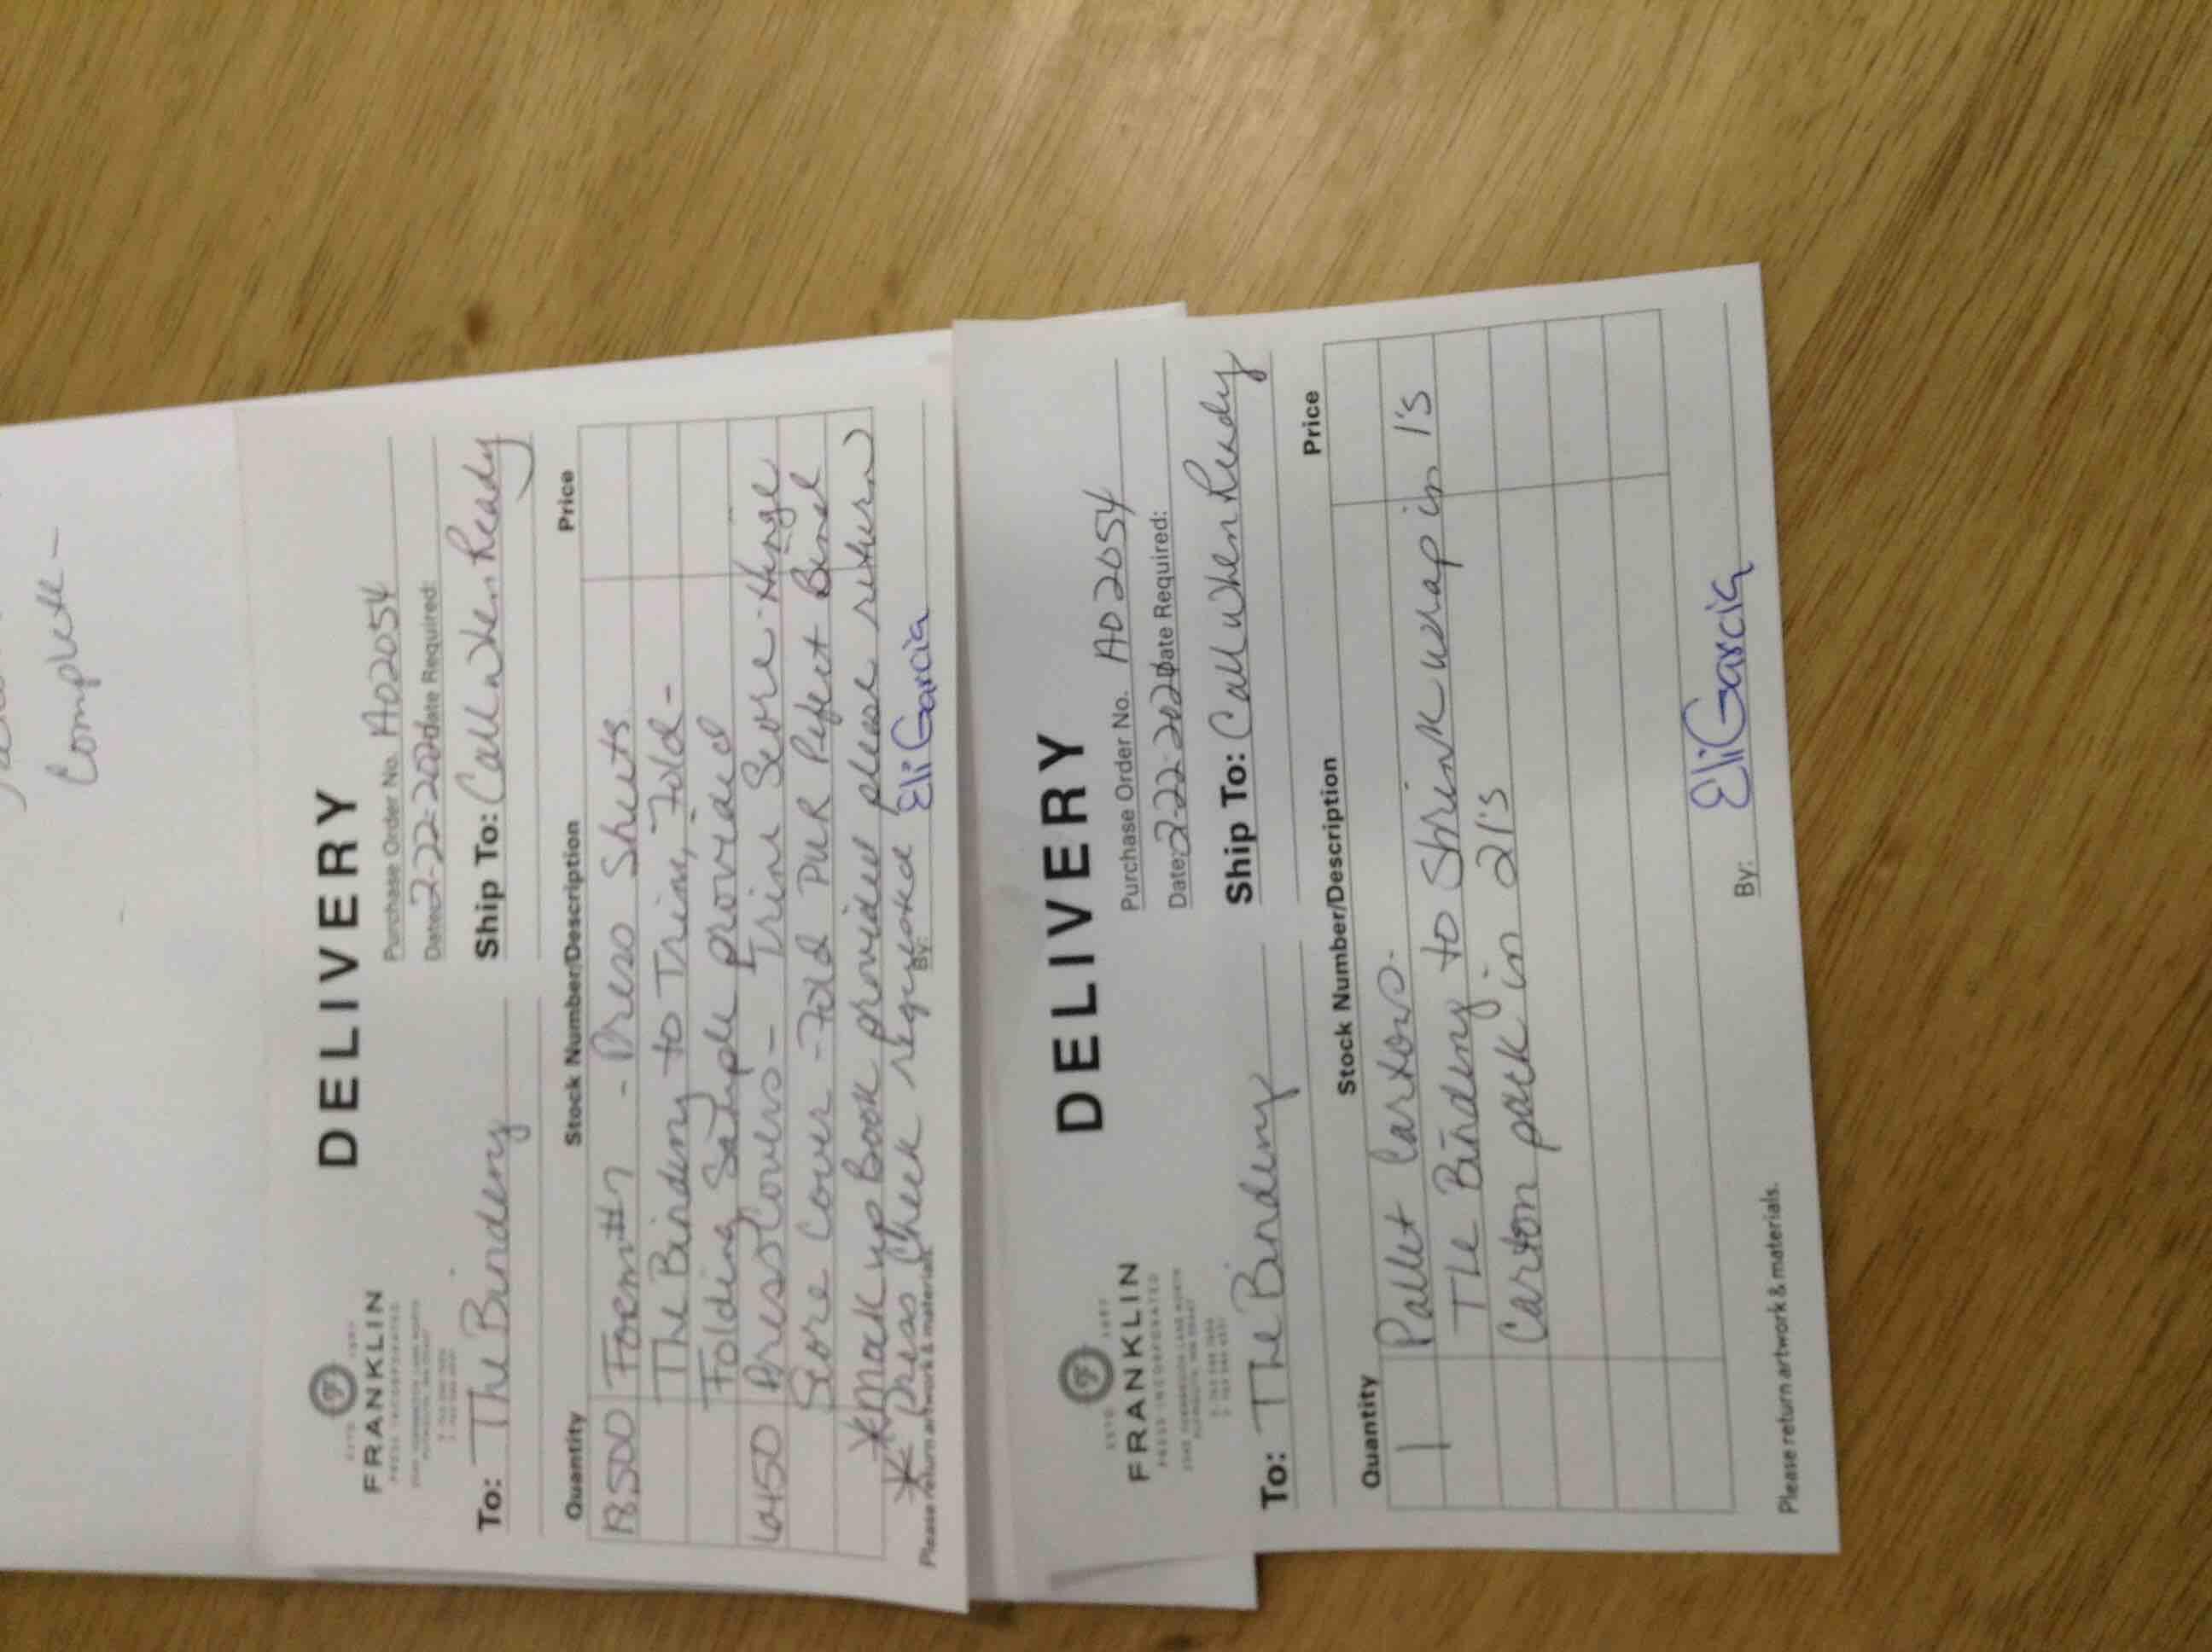 Complete-
DELIVERY
FRANKLIN
PRESS INCORPORATED
Purchase Order No. AD2054
Date: 2-22-2020 Date Required:
To: The Bindery
Ship To: Call when Ready
Quantity Stock Number/Description Price
Form #7 - Press Sheets
The Bindery to Trim, Fold-
Folding Sample provided
6450 Press Covers - Trim Score-Hinge
Score Cover - Fold PUR Perfect Bind
*Mock up Book provided please return
* Press Check requested
By: Eli Garcia
Please return artwork & materials.
DELIVERY
FRANKLIN
PRESS INCORPORATED
Purchase Order No. AD2054
Date: 2-22-2020 Date Required:
To: The Bindery
Ship To: Call when Ready
Quantity Stock Number/Description Price
1 Pallet Cartons.
The Bindery to Shrink wrap in 1's
Carton pack in 21's
By: Eli Garcia
Please return artwork & materials.